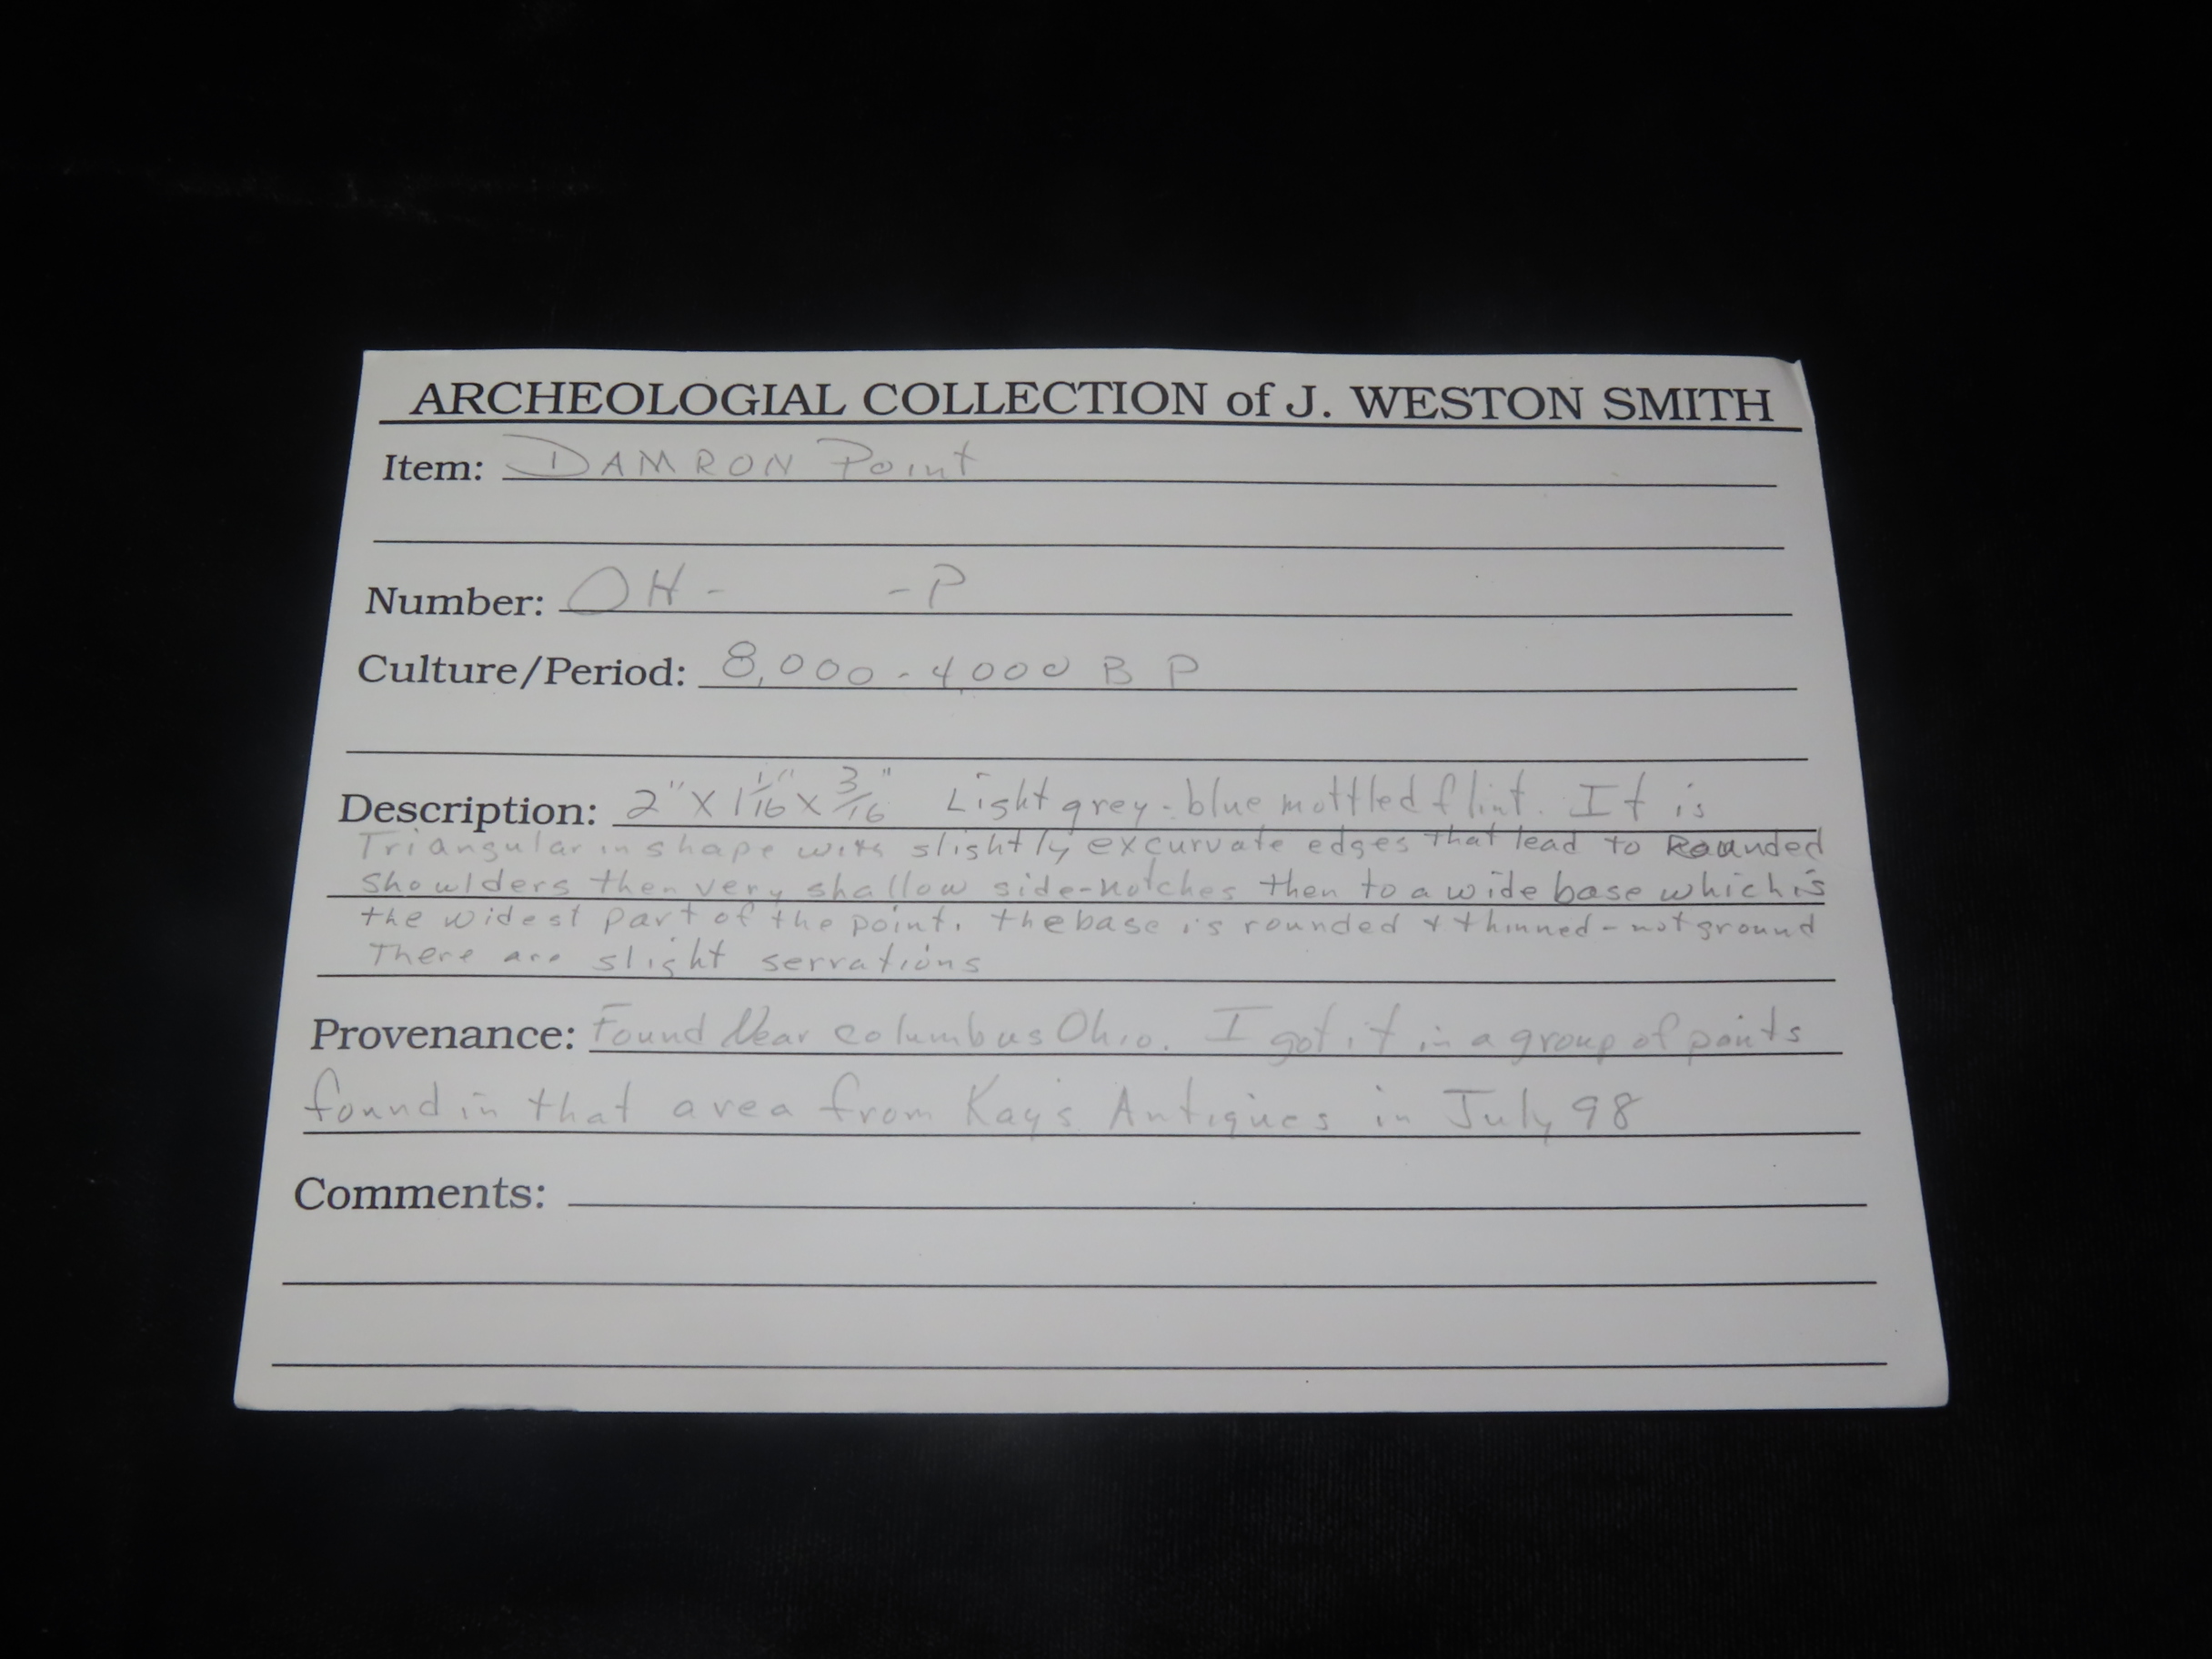 ARCHEOLOGIAL COLLECTION of J. WESTON SMITH
Item: DAMRON Point
Number: OH- -P
Culture/Period: 8,000-4,000 BP
Description: 2" X 1 1/16" X 3/16" Light grey-blue mottled flint. It is
Triangular in shape with slightly excurvate edges that lead to Rounded
Shoulders then very shallow side-notches then to a wide base which is
the widest part of the point. the base is rounded & thinned-not ground
There are slight serrations
Provenance: Found Near Columbus Ohio. I got it in a group of points
found in that area from Kay's Antiques in July 98
Comments: